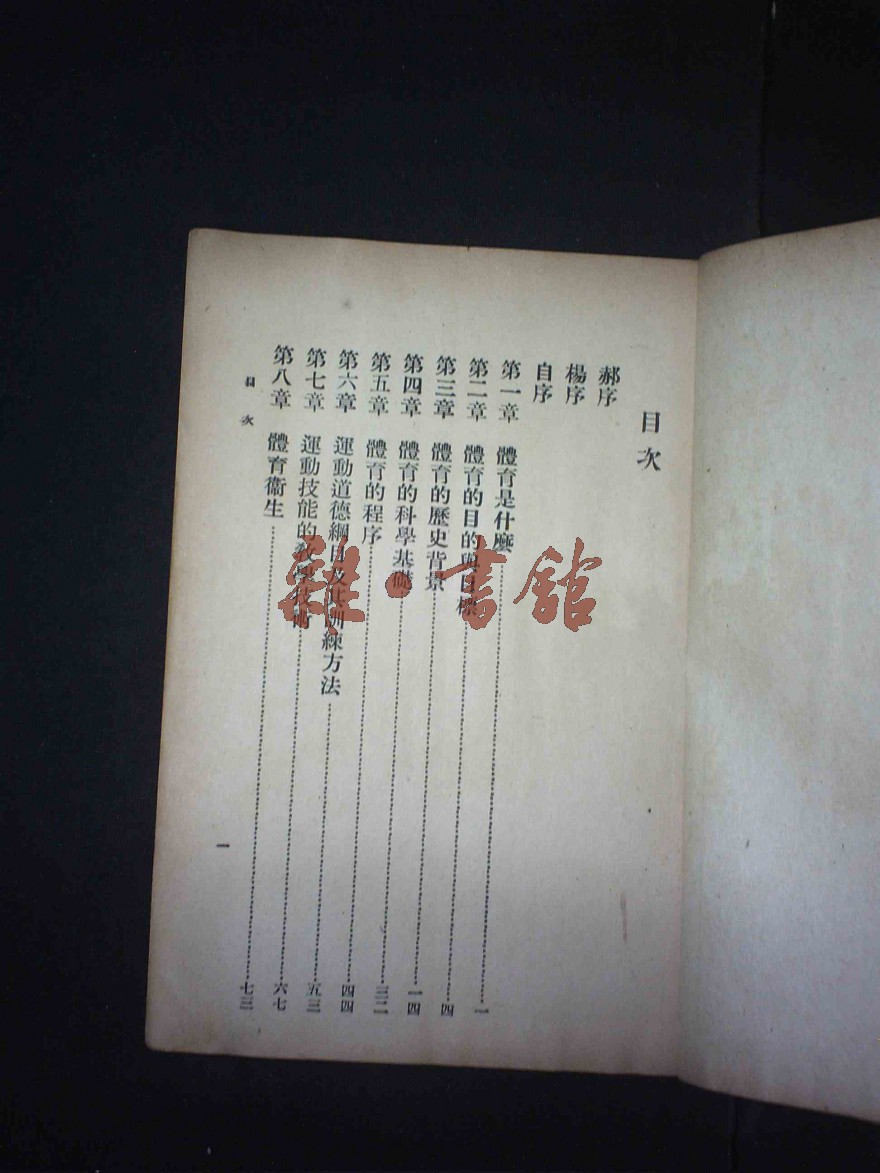 目次
郝序
楊序
自序
第一章　體育是什麼……一
第二章　體育的目的與目標……四
第三章　體育的歷史背景……一四
第四章　體育的科學基礎……三二
第五章　體育的程序……四四
第六章　運動道德綱目及其訓練方法……五三
第七章　運動技能的教學技術……六七
第八章　體育衞生……七三
目次
一
雜·書館